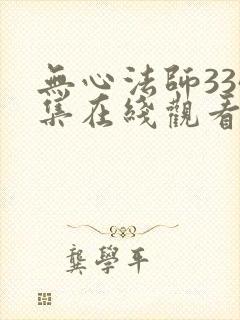 無心法師334
集在綫觀看
龔學平